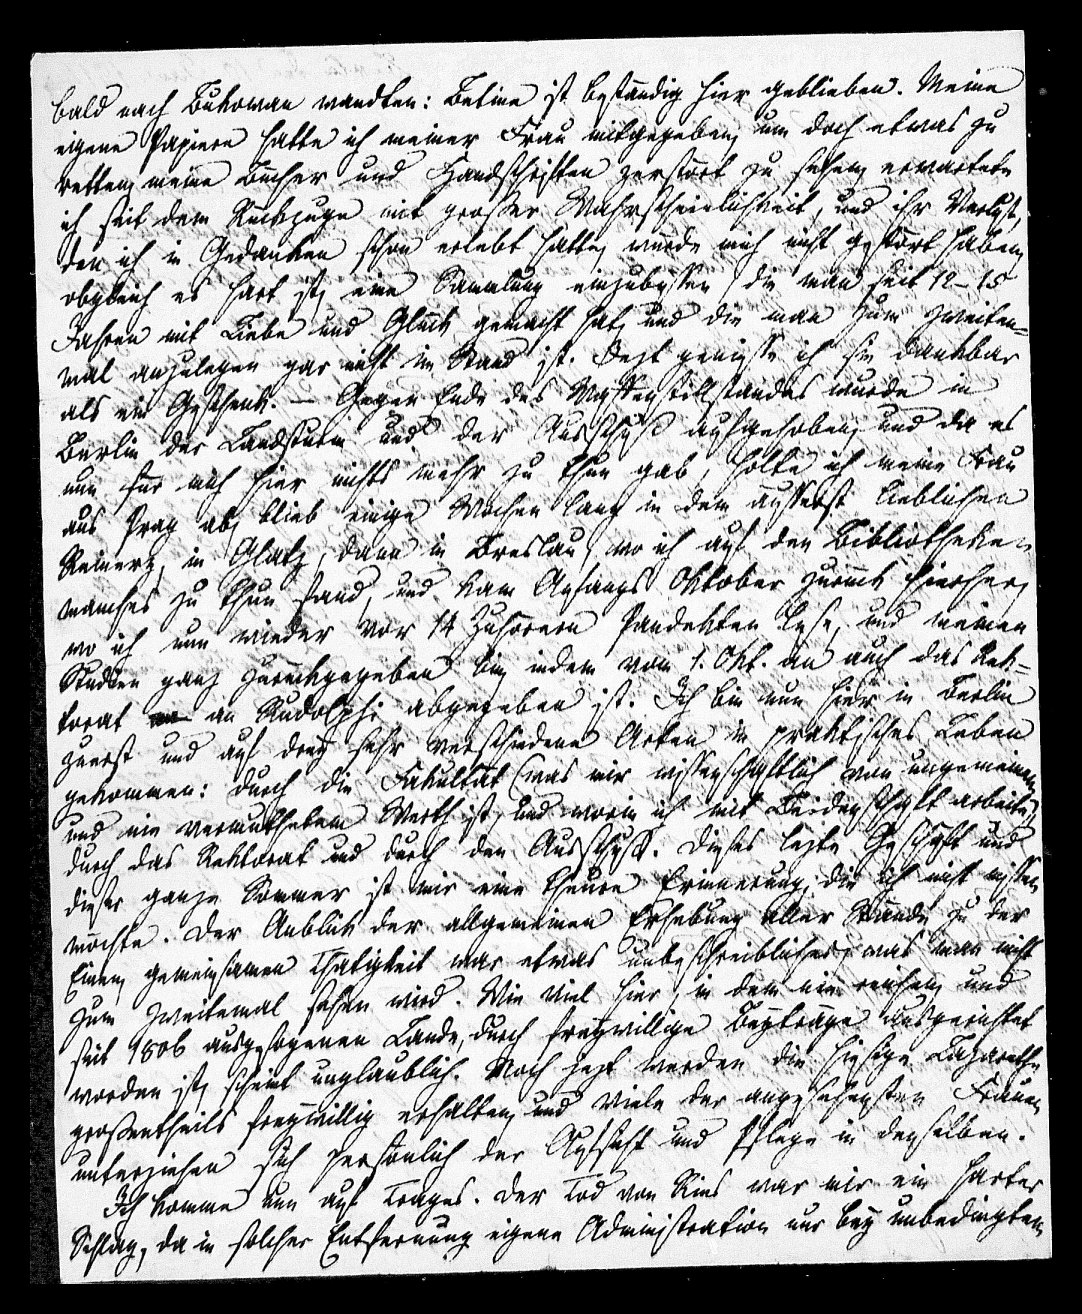 bald nach Bukowan wandten: Betine ist beständig hier geblieben. Meine
eigene Papiere hatte ich meiner Frau mitgegeben, um doch etwas zu
retten, meine Bücher und Handschriften zerstört zu sehen, erwartete
ich seit dem Rückzuge mit großer Wahrscheinlichkeit, und ihr Verlust,
den ich in Gedanken schon erlebt hatte, würde mich nicht gestört haben,
obgleich es hart ist, eine Sammlung einzubüssen, die man seit 12–15
Jahren mit Liebe und Glück gemacht hat, und die man zum zweiten-
mal anzulegen gar nicht im Stand ist. Jezt geniesse ich sie dankbar
als ein Geschenk. – Gegen Ende des Waffenstillstandes wurde in
Berlin der Landsturm und der Ausschuß aufgehoben, und da es
nun für mich hier nichts mehr zu thun gab, holte ich meine Frau
aus Prag ab, blieb einige Wochen lang in dem äusserst lieblichen
Reinerz, in Glatz, dann in Breslau, wo ich auf den Bibliotheken
manches zu thun fand, und kam Anfangs Oktober zurück hierher,
wo ich nun wieder vor 14 Zuhörern Pandekten lese, und meinen
Studien ganz zurückgegeben bin, indem vom 1. Okt. an auch das Rek-
torat an Rudolphi abgegeben ist. Ich bin nun hier in Berlin
zuerst und auf drey sehr verschiedene Arten in praktisches Leben
gekommen: durch die Fakultät (was mir wissenschaftlich von ungemeinem
und nie vermuthetem Werth ist, und worin ich mit Leidenschaft arbeite)
durch das Rektorat und durch den Ausschuß. Dieses lezte Geschäft und
dieser ganze Sommer ist mir eine theure Erinnerung, die ich nicht missen
möchte. Der Anblick der allgemeinen Erhebung aller Stände zu der
Einen, gemeinsamen Thätigkeit war etwas unbeschreibliches, was man nicht
zum zweitenmal sehen wird. Wie viel hier, in dem nie reichen, und
seit 1806 ausgesogenen Lande, durch freywillige Beyträge ausgerichtet
worden ist, scheint unglaublich. Noch jezt werden die hiesige Lazarethe
großentheils freywillig erhalten, und viele der angesehensten Frauen
unterziehen sich persönlich der Aufsicht und Pflege in denselben.
Ich komme nun auf Trages. Der Tod von Ries war mir ein harter
Schlag, da in solcher Entfernung eigene Administration nur bey unbedingtem